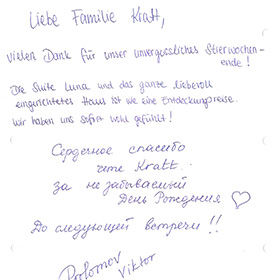 Liebe Familie Kratt,
vielen Dank für unser unvergessliches Stierwochen-
ende!
Die Suite Luna und das ganze liebevoll
eingerichtetes Haus ist wie eine Entdeckungsreise.
Wir haben uns sofort wohl gefühlt!
Сердечное спасибо
Kratt.
за не забываемый
День Рождения
До следующей встречи!!
Viktor